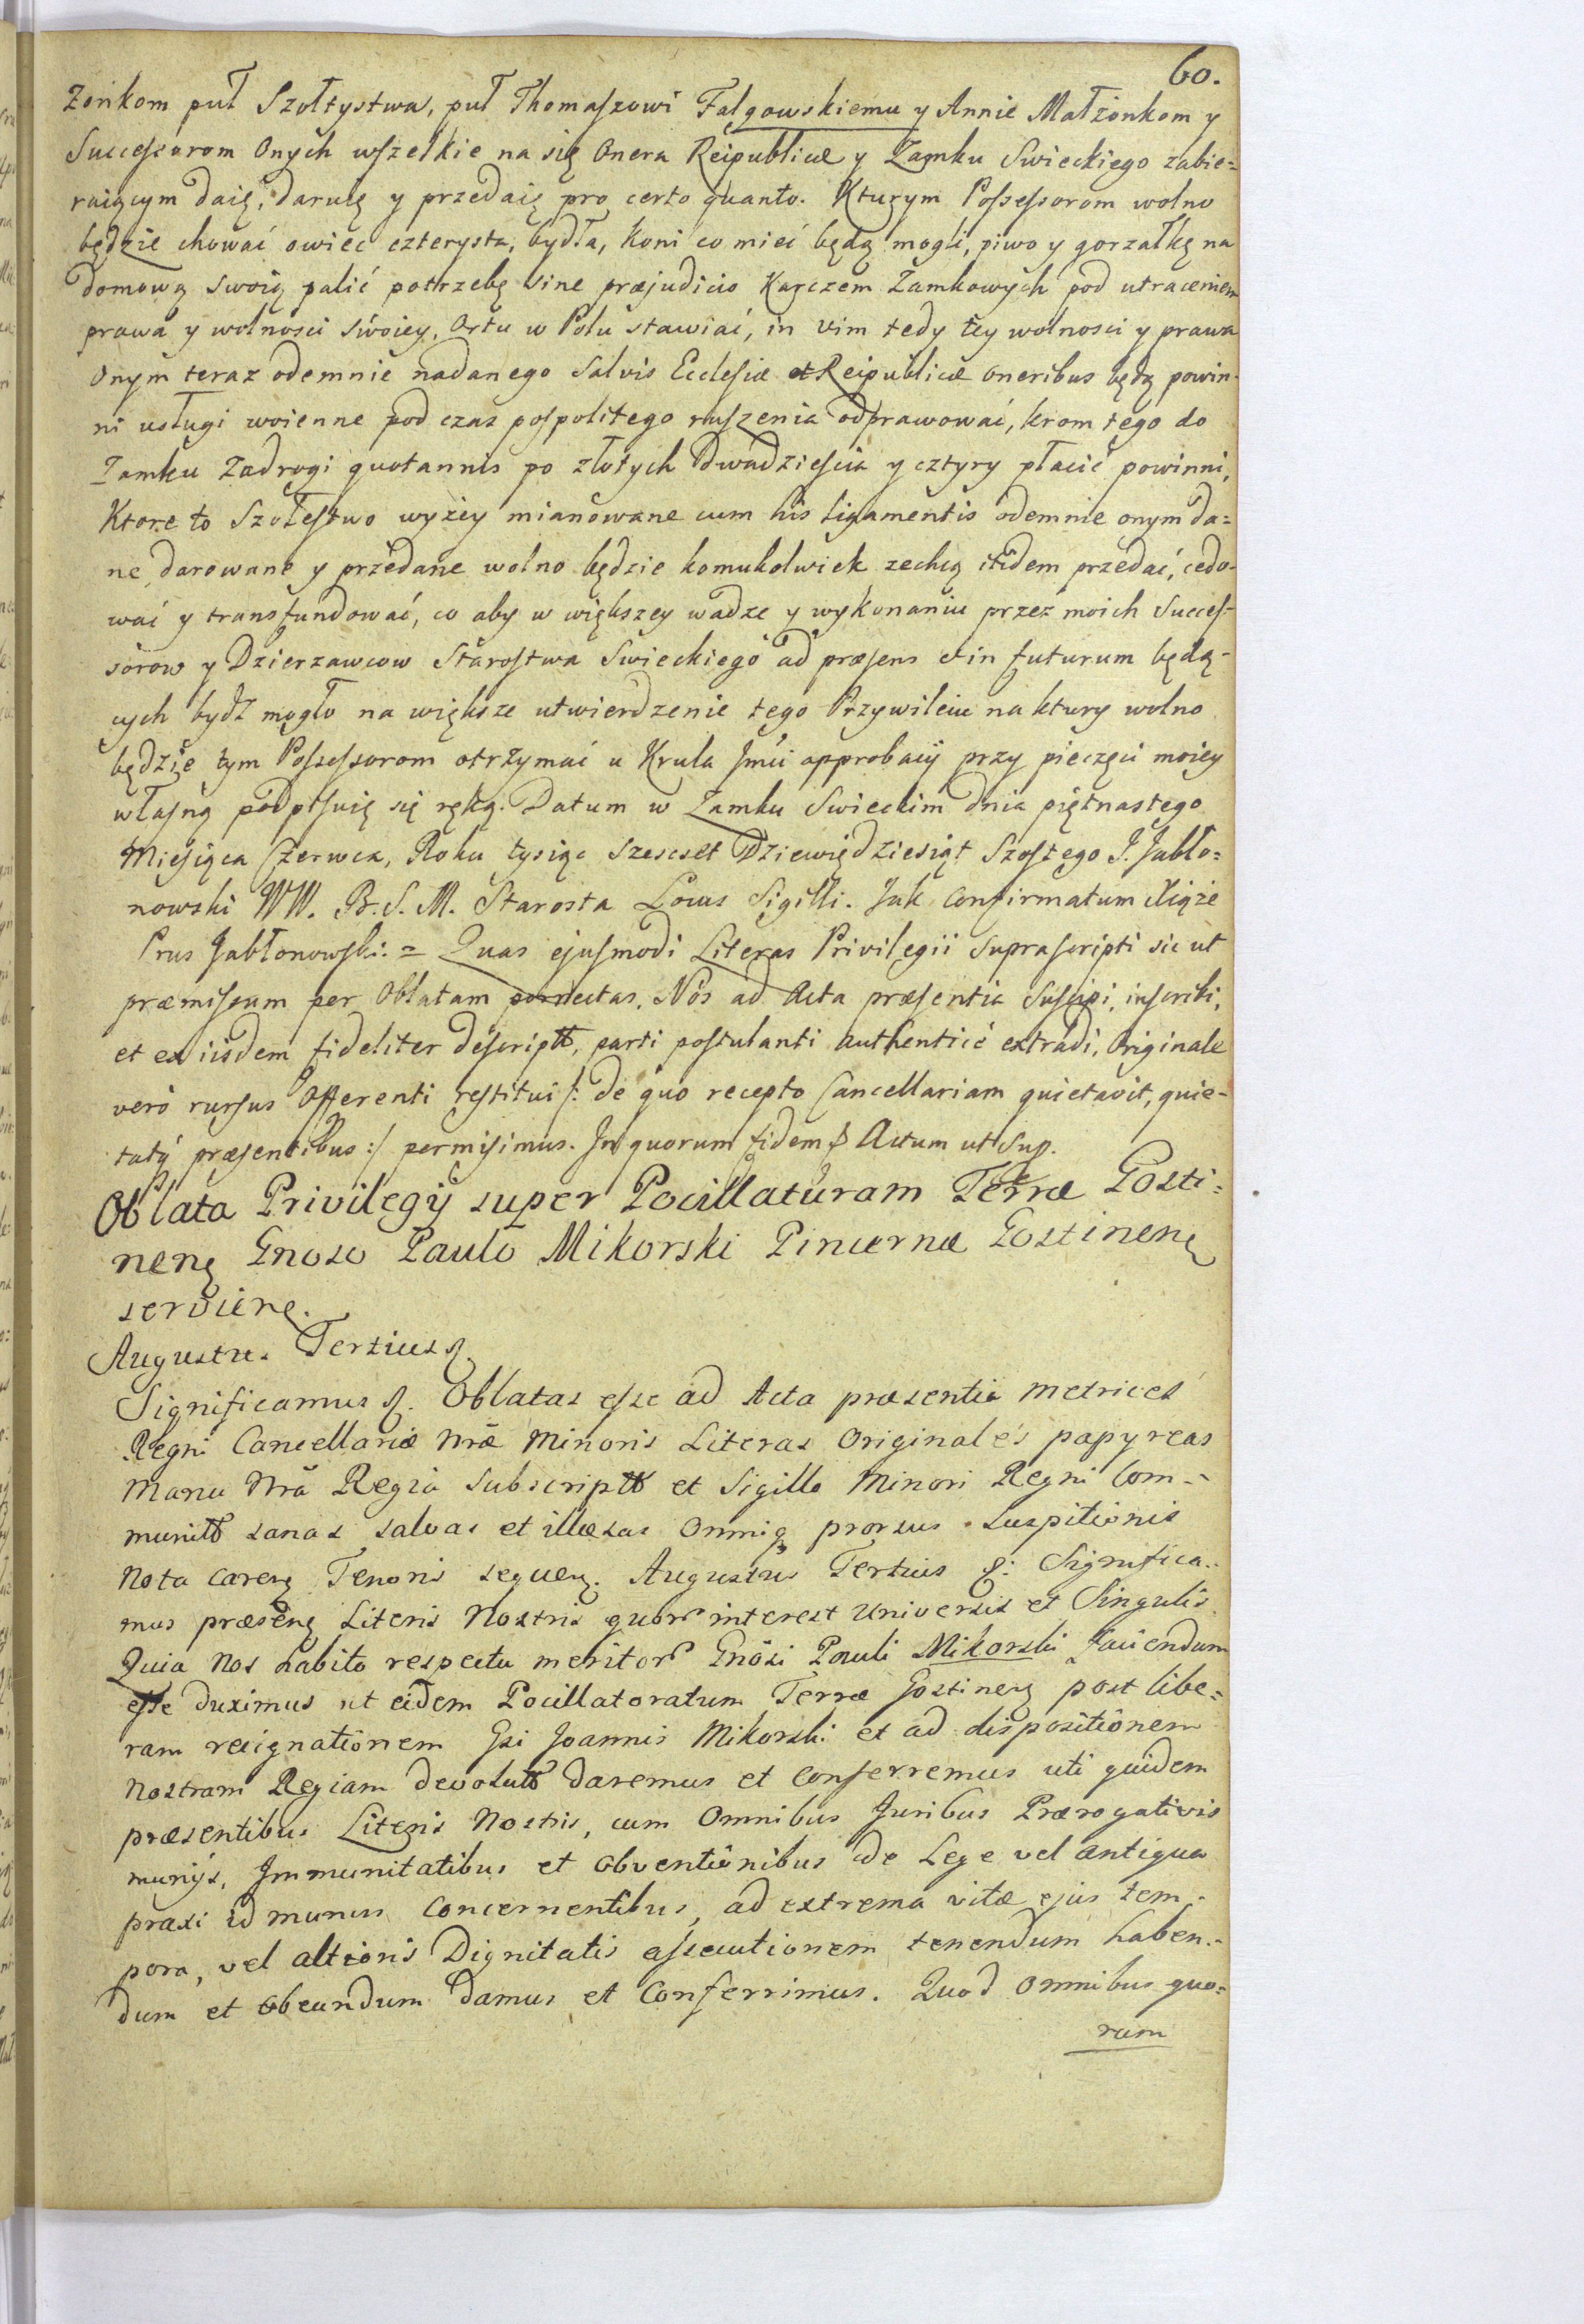 60.
żonkom puł Szołtystwa, puł Thomaszowi Falgowskiemu y Annie Małżonkom y
Successorom Onych wszelkie na się Onera Reipublicæ y Zamku Swieckiego zabie=
raiącym daię, daruię y przedaię pro certo quanto. Kturym Possessorom wolno
będzie chować owiec czterysta, bydła, koni co mieć będą mogli, piwo y gorzałkę na
domową swoią palić potrzebę sine præjudicio Karczem Zamkowych pod utraceniem
prawa y wolnosci swoiey, Ortu w Polu stawiać, in vim tedy tey wolnosci y prawa
Onym teraz odemnie nadanego Salvis Ecclesiæ et Reipublicæ Oneribus będą powin-
ni usługi woienne pod czas pospolitego ruszenia odprawować, krom tego do
Zamku Zadrogi quotannis po złotych Dwadziescia y cztyry płacić powinni,
Ktore to Szołestwo wyżey mianowane cum his Ligamentis odemnie onym da=
ne, darowane y przedane wolno będzie komukolwiek zechcą itidem przedać, cedo-
wać y transfundować, co aby w większey wadze y wykonaniu przez moich Succes-
sorow y Dzierzawcow Starostwa Swieckiego ad præsens et in futurum będą-
cych bydź mogło na większe utwierdzenie tego Przywileiu na ktury wolno
będzie tym Possessorom otrzymać u Krula Jmći approbacÿ przy pieczęci moiey
własną podpisuię się ręką. Datum w Zamku Swieckim dnia piętnastego
Miesiąca Czerwca, Roku tysiąc szescset Dziewiędziesiąt Szostego J. Jabło=
nowski WW. R. S. M. Starosta Locus Sigilli. Jak Confirmatum Xiąże
Prus Jabłonowski: = Quas ejusmodi Literas Privilegii suprascripti sic ut
præmissum per Oblatam porrectas, Nos ad Acta præsentia suscipi, inscribi,
et ex iisdem fideliter descriptt, parti postulanti authenticè extradi, Originale
verò rursus Offerenti restitui /: de quo recepto Cancellariam quietavit, quie-
tatq præsentibus :/ permisimus. In quorum fidem Actum ut Sup.
Oblata Privilegÿ super Pocillaturam Terræ Gosti=
nenę Gnoso Paulo Mikorski Pincernæ Gostinenę
servienę.
Augustus Tertius
Significamus. Oblatas esse ad Acta præsentia metrices
Regni Cancellariæ Nræ Minoris Literas Originales papyreas
Manu Nrã Regia subscriptt et Sigillo Minori Regni Com-
munitt sanas salvas et illæsas Omniq prorsus suspitionis
Nota carenę Tenoris sequenę. Augustus Tertius Significa-
mus præsenę Literis Nostris quorr interest Universis et Singulis
Quia Nos habito respectu meritorr Gnõsi Pauli Mikorski Faciendum
esse duximus ut eidem Pocillatoratum Terræ Gostinenę post libe=
ram resignationem Gsi Joannis Mikorski et ad dispositionem
Nostram Regiam devolutt daremus et conferremus uti quidem
præsentibus Literis Nostris, cum Omnibus Juribus Prærogativis
munÿs, Immunitatibus et Obventionibus de Lege vel antiqua
praxi id munus concernentibus, ad extrema vitæ ejus tem-
pora, vel altioris Dignitatis assecutionem tenendum haben-
dum et Obeundum damus et Conferrimus. Quod Omnibus quo=
rum